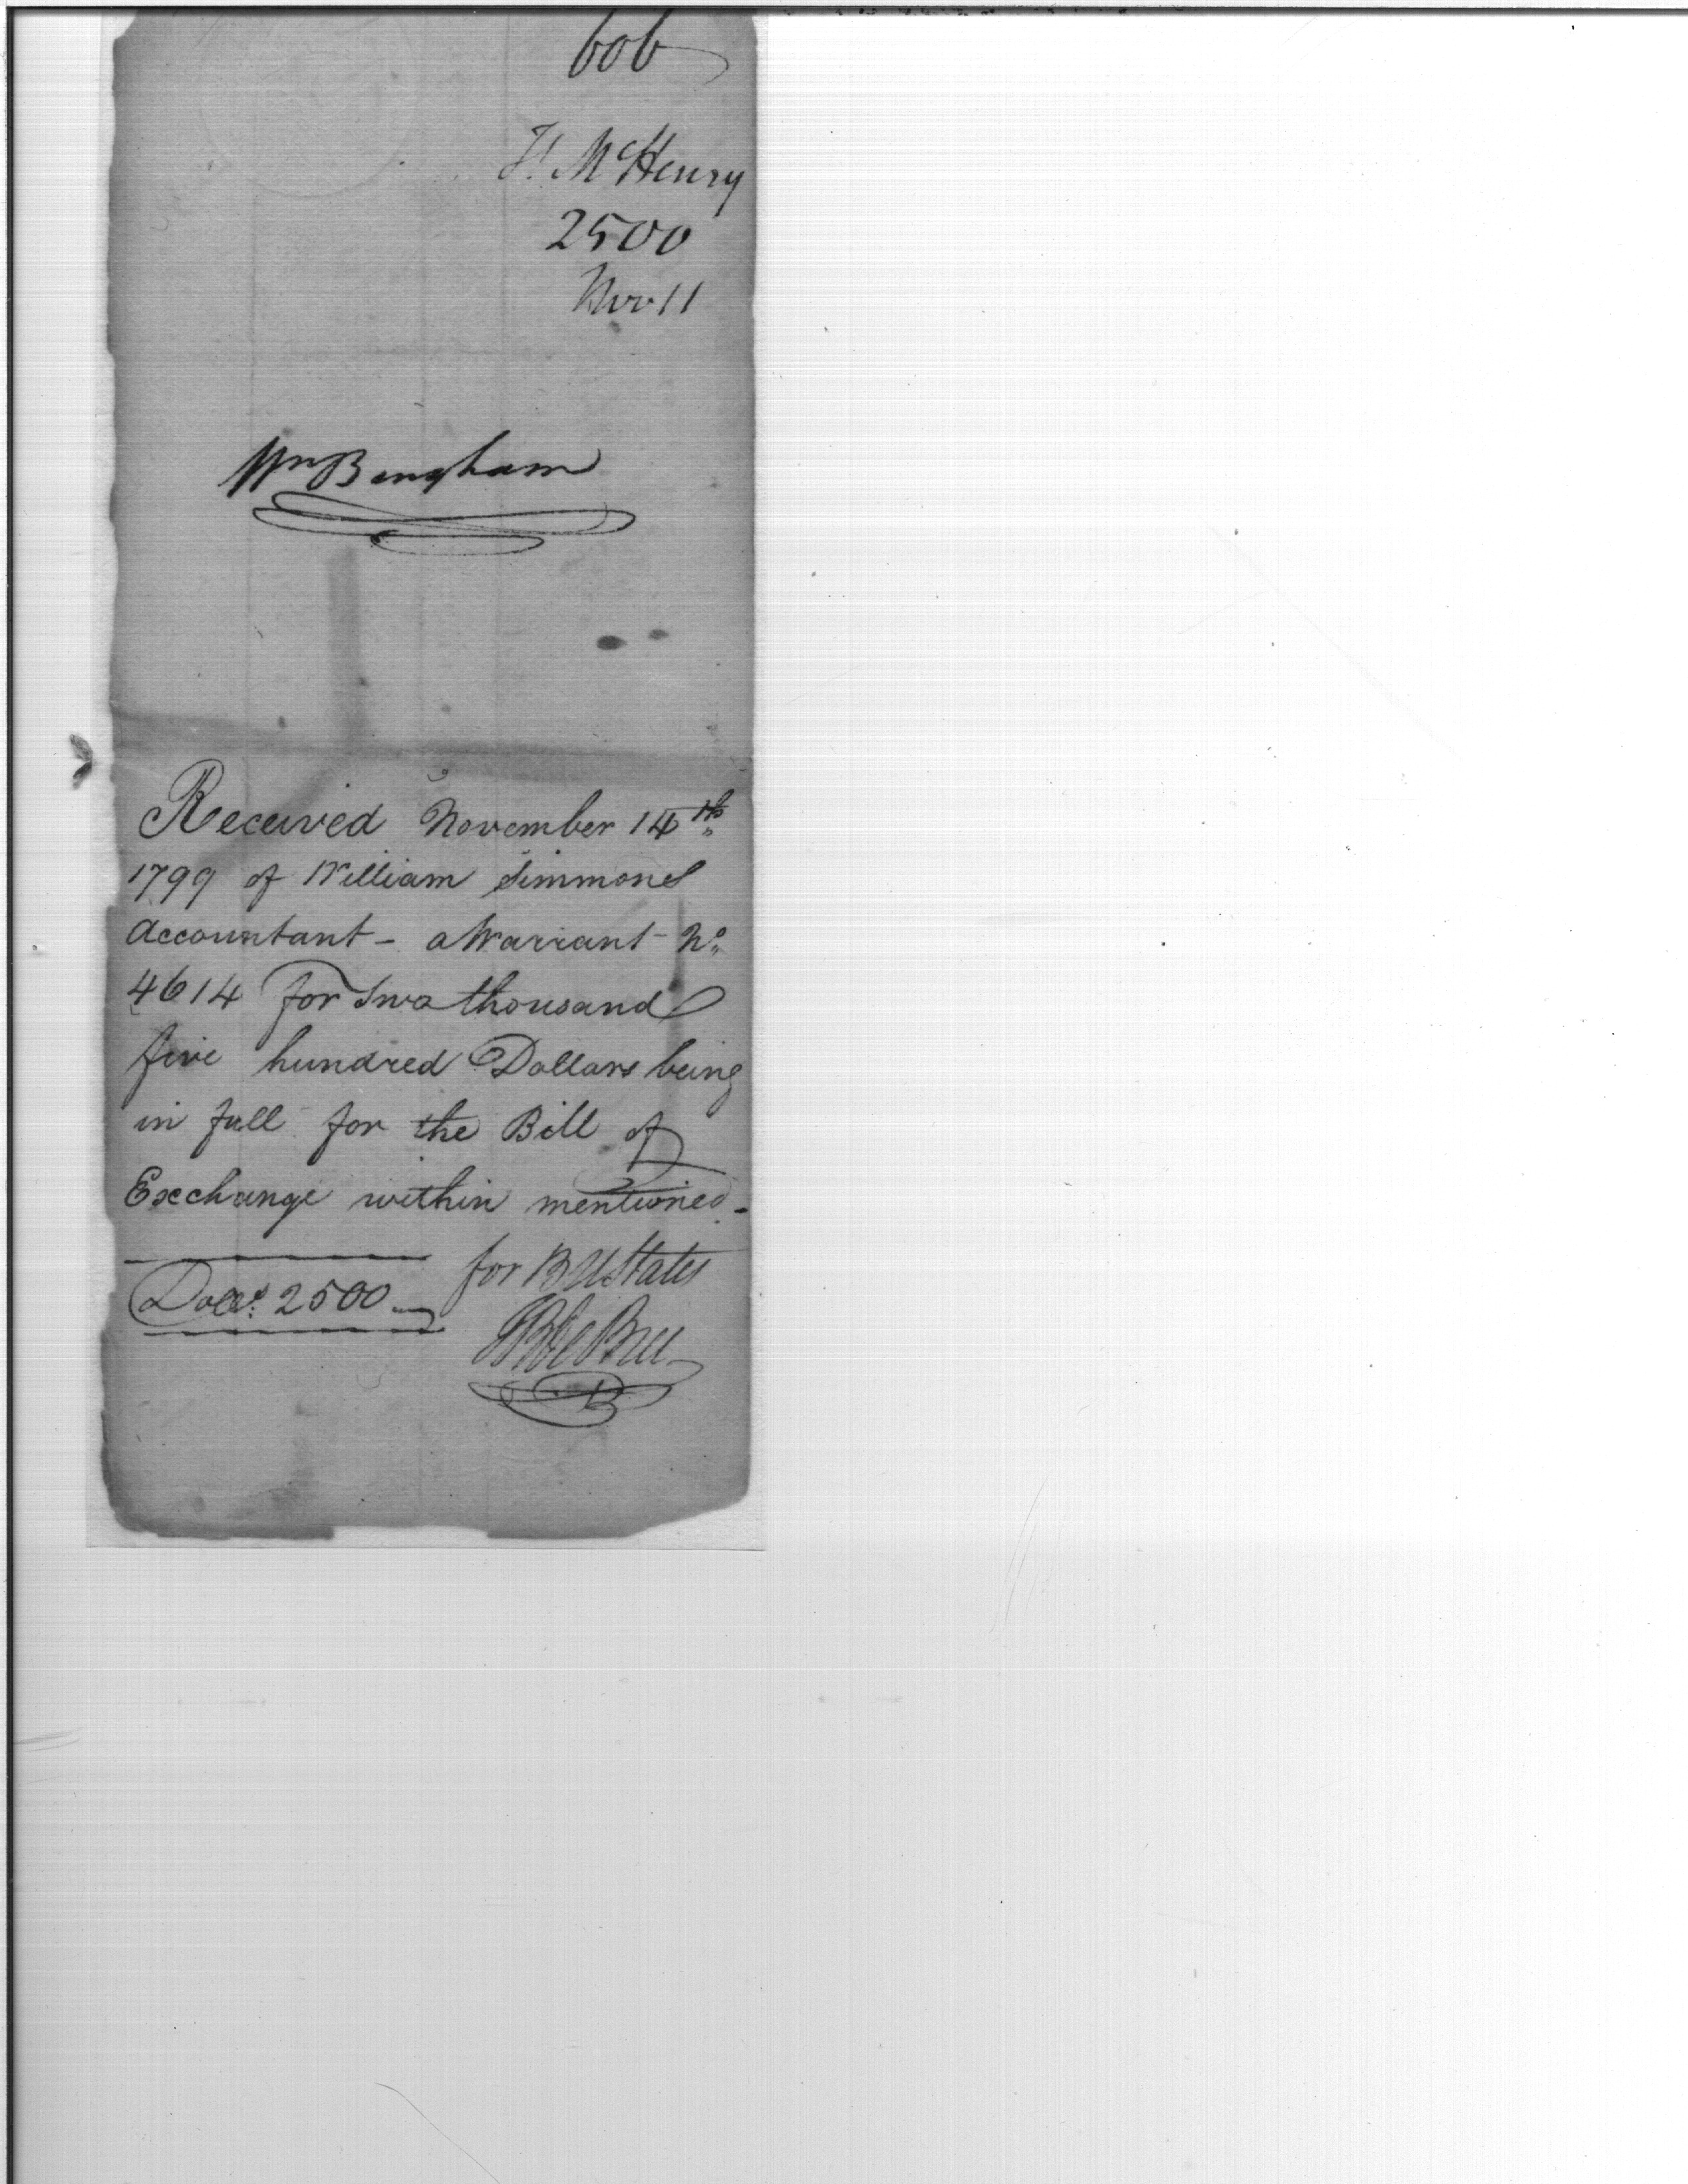 606
Js. McHenry
2500
Nov 11
Wm Bingham
Received November 14th
1799 of William Simmons
Accountant - a Warrant No
4614 for Two thousand
five hundred Dollars being
in full for the Bill of
Exchange within mentioned -
for B UStates
Dolls. 2500